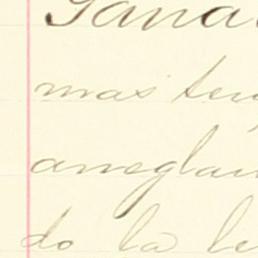 Gana
mas ten
arreglan
do la le